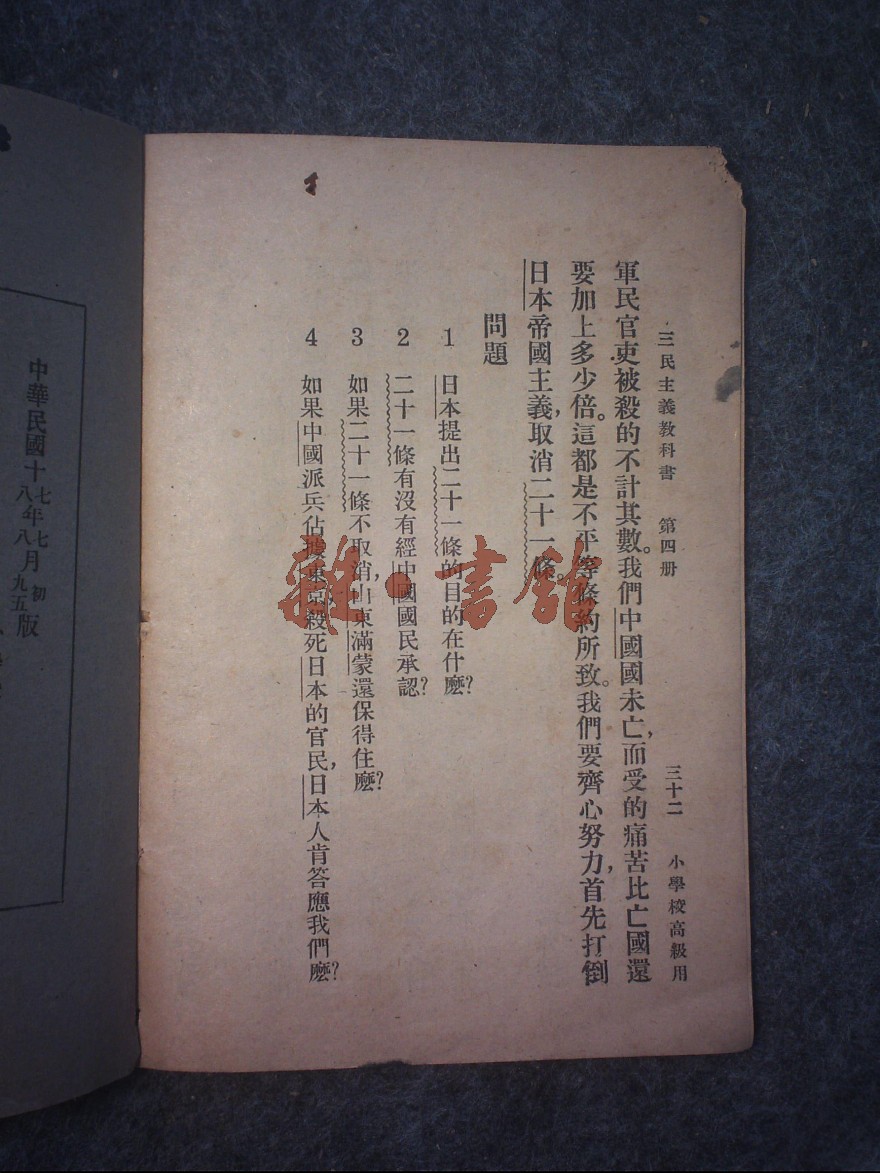 三民主義教科書 第四册 三十二 小學校高級用
軍民官吏被殺的不計其數。我們中國國未亡，而受的痛苦比亡國還
要加上多少倍。這都是不平等條約所致。我們要齊心努力，首先打倒
日本帝國主義，取消二十一條。
問題
1 日本提出二十一條的目的在什麽？
2 二十一條有沒有經中國國民承認？
3 如果二十一條不取消，山東滿蒙還保得住麽？
4 如果中國派兵佔據東京，殺死日本的官民，日本人肯答應我們麽？
雜·書館
中華民國十七年七月初版
八年八月九五版